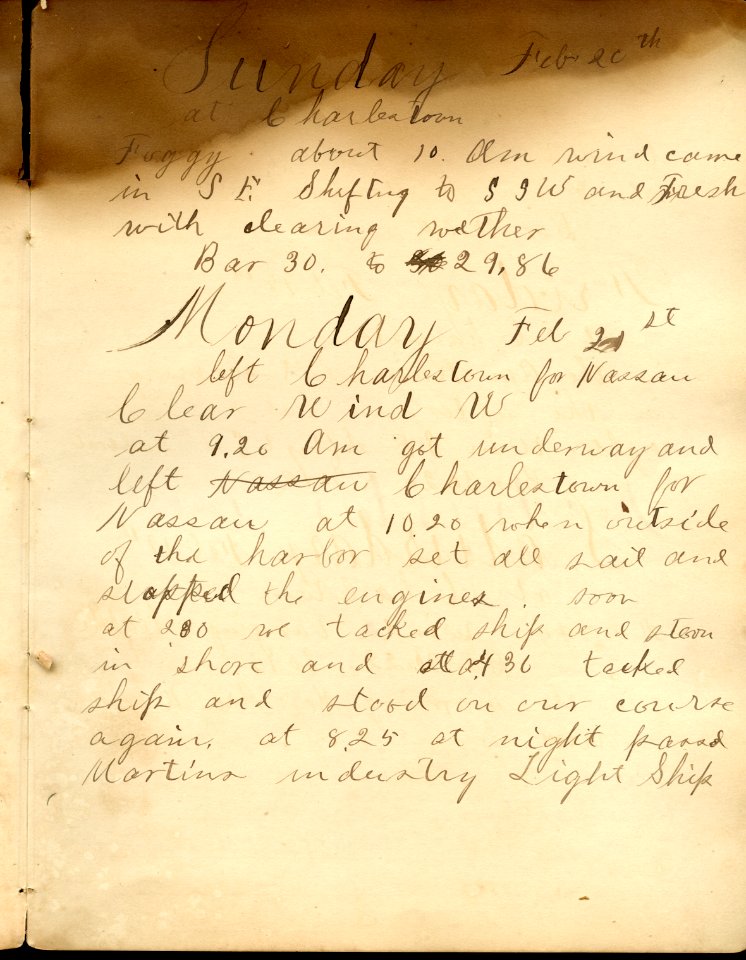 Sunday Feb 20th
at Charlestown
Foggy about 10. Am wind came
in S E. Shifting to S S W and Fresh
with clearing wether
Bar 30. to 29,86
Monday Feb 21st
left Charlestown for Nassau
Clear Wind W
at 9.20 Am got underway and
left Nassau Charlestown for
Nassau at 10 20 when outside
of the harbor set all sail and
stopped the engines. soon
at 200 we tacked ship and stoon
in shore and at 430 tacked
ship and stood on our course
again. at 8.25 at night passd
Martins industry Light Ship